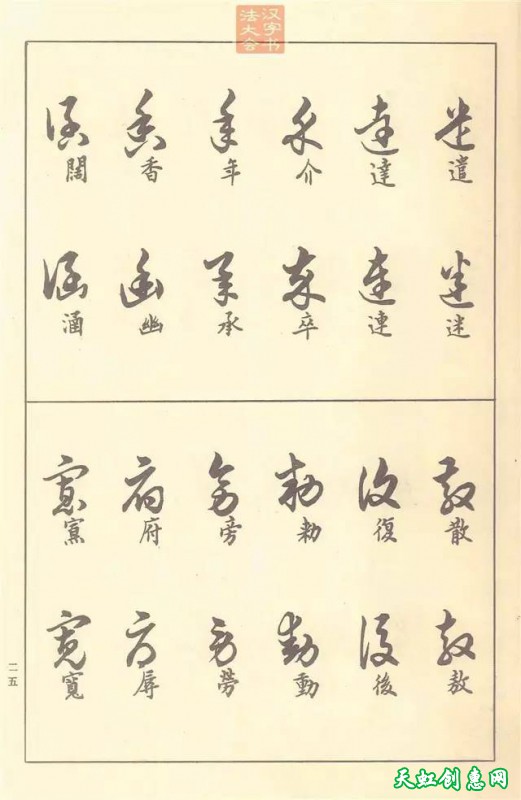 汉字书
法大会
遣 達 介 年 香 闊
迷 連 卒 承 幽 涵
散 復 勅 旁 府
敖 後 動 勞 辱 寬
二五
天虹创惠网